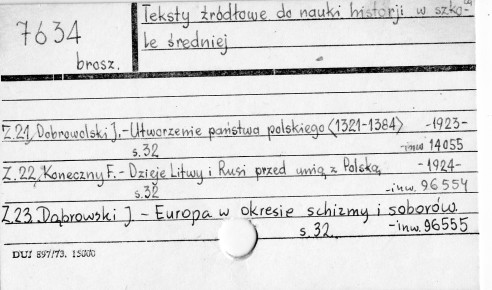 7634
brosz.
Teksty źródłowe do nauki historji w szko-
le średniej
Z.21, Dobrowolski J.-Utworzenie państwa polskiego (1321-1384) -1923-
s.32 -inw 14055
Z.22, Koneczny F.- Dzieje Litwy i Rusi przed unią z Polską -1924-
s.32 -inw. 96554
Z.23. Dąbrowski J - Europa w okresie schizmy i soborów
s.32. -inw. 96555
DUJ 897/73. 15000